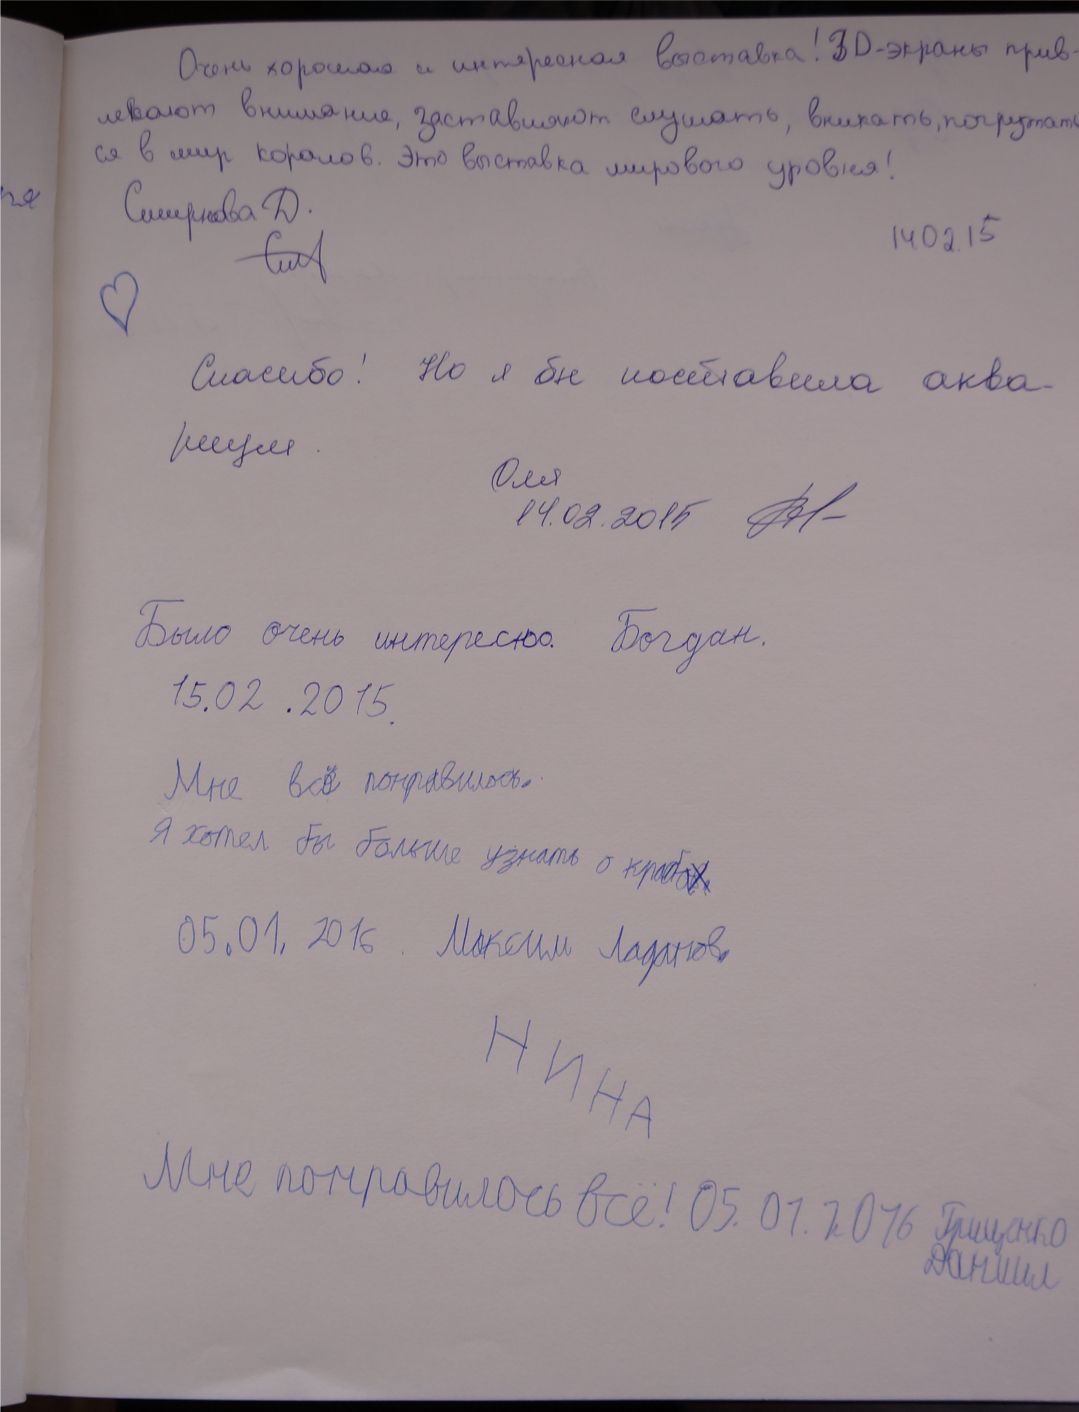 Очень хорошая и интересная выставка! 3D-экраны прив-
лекают внимание, заставляют слушать, вникать, погружать
ся в мир коралов. Это выставка мирового уровня!
Смирнова Д.
14.02.15
Спасибо! Но я бы поставила аква-
риум.
Оля
14.02.2015
Было очень интересно. Богдан.
15.02.2015.
Мне всё понравилось.
Я хотел бы больше узнать о крабах
05.01.2016. Максим Ладанов.
НИНА
Мне понравилось всё! 05.01.2016 Грищенко
Даниил